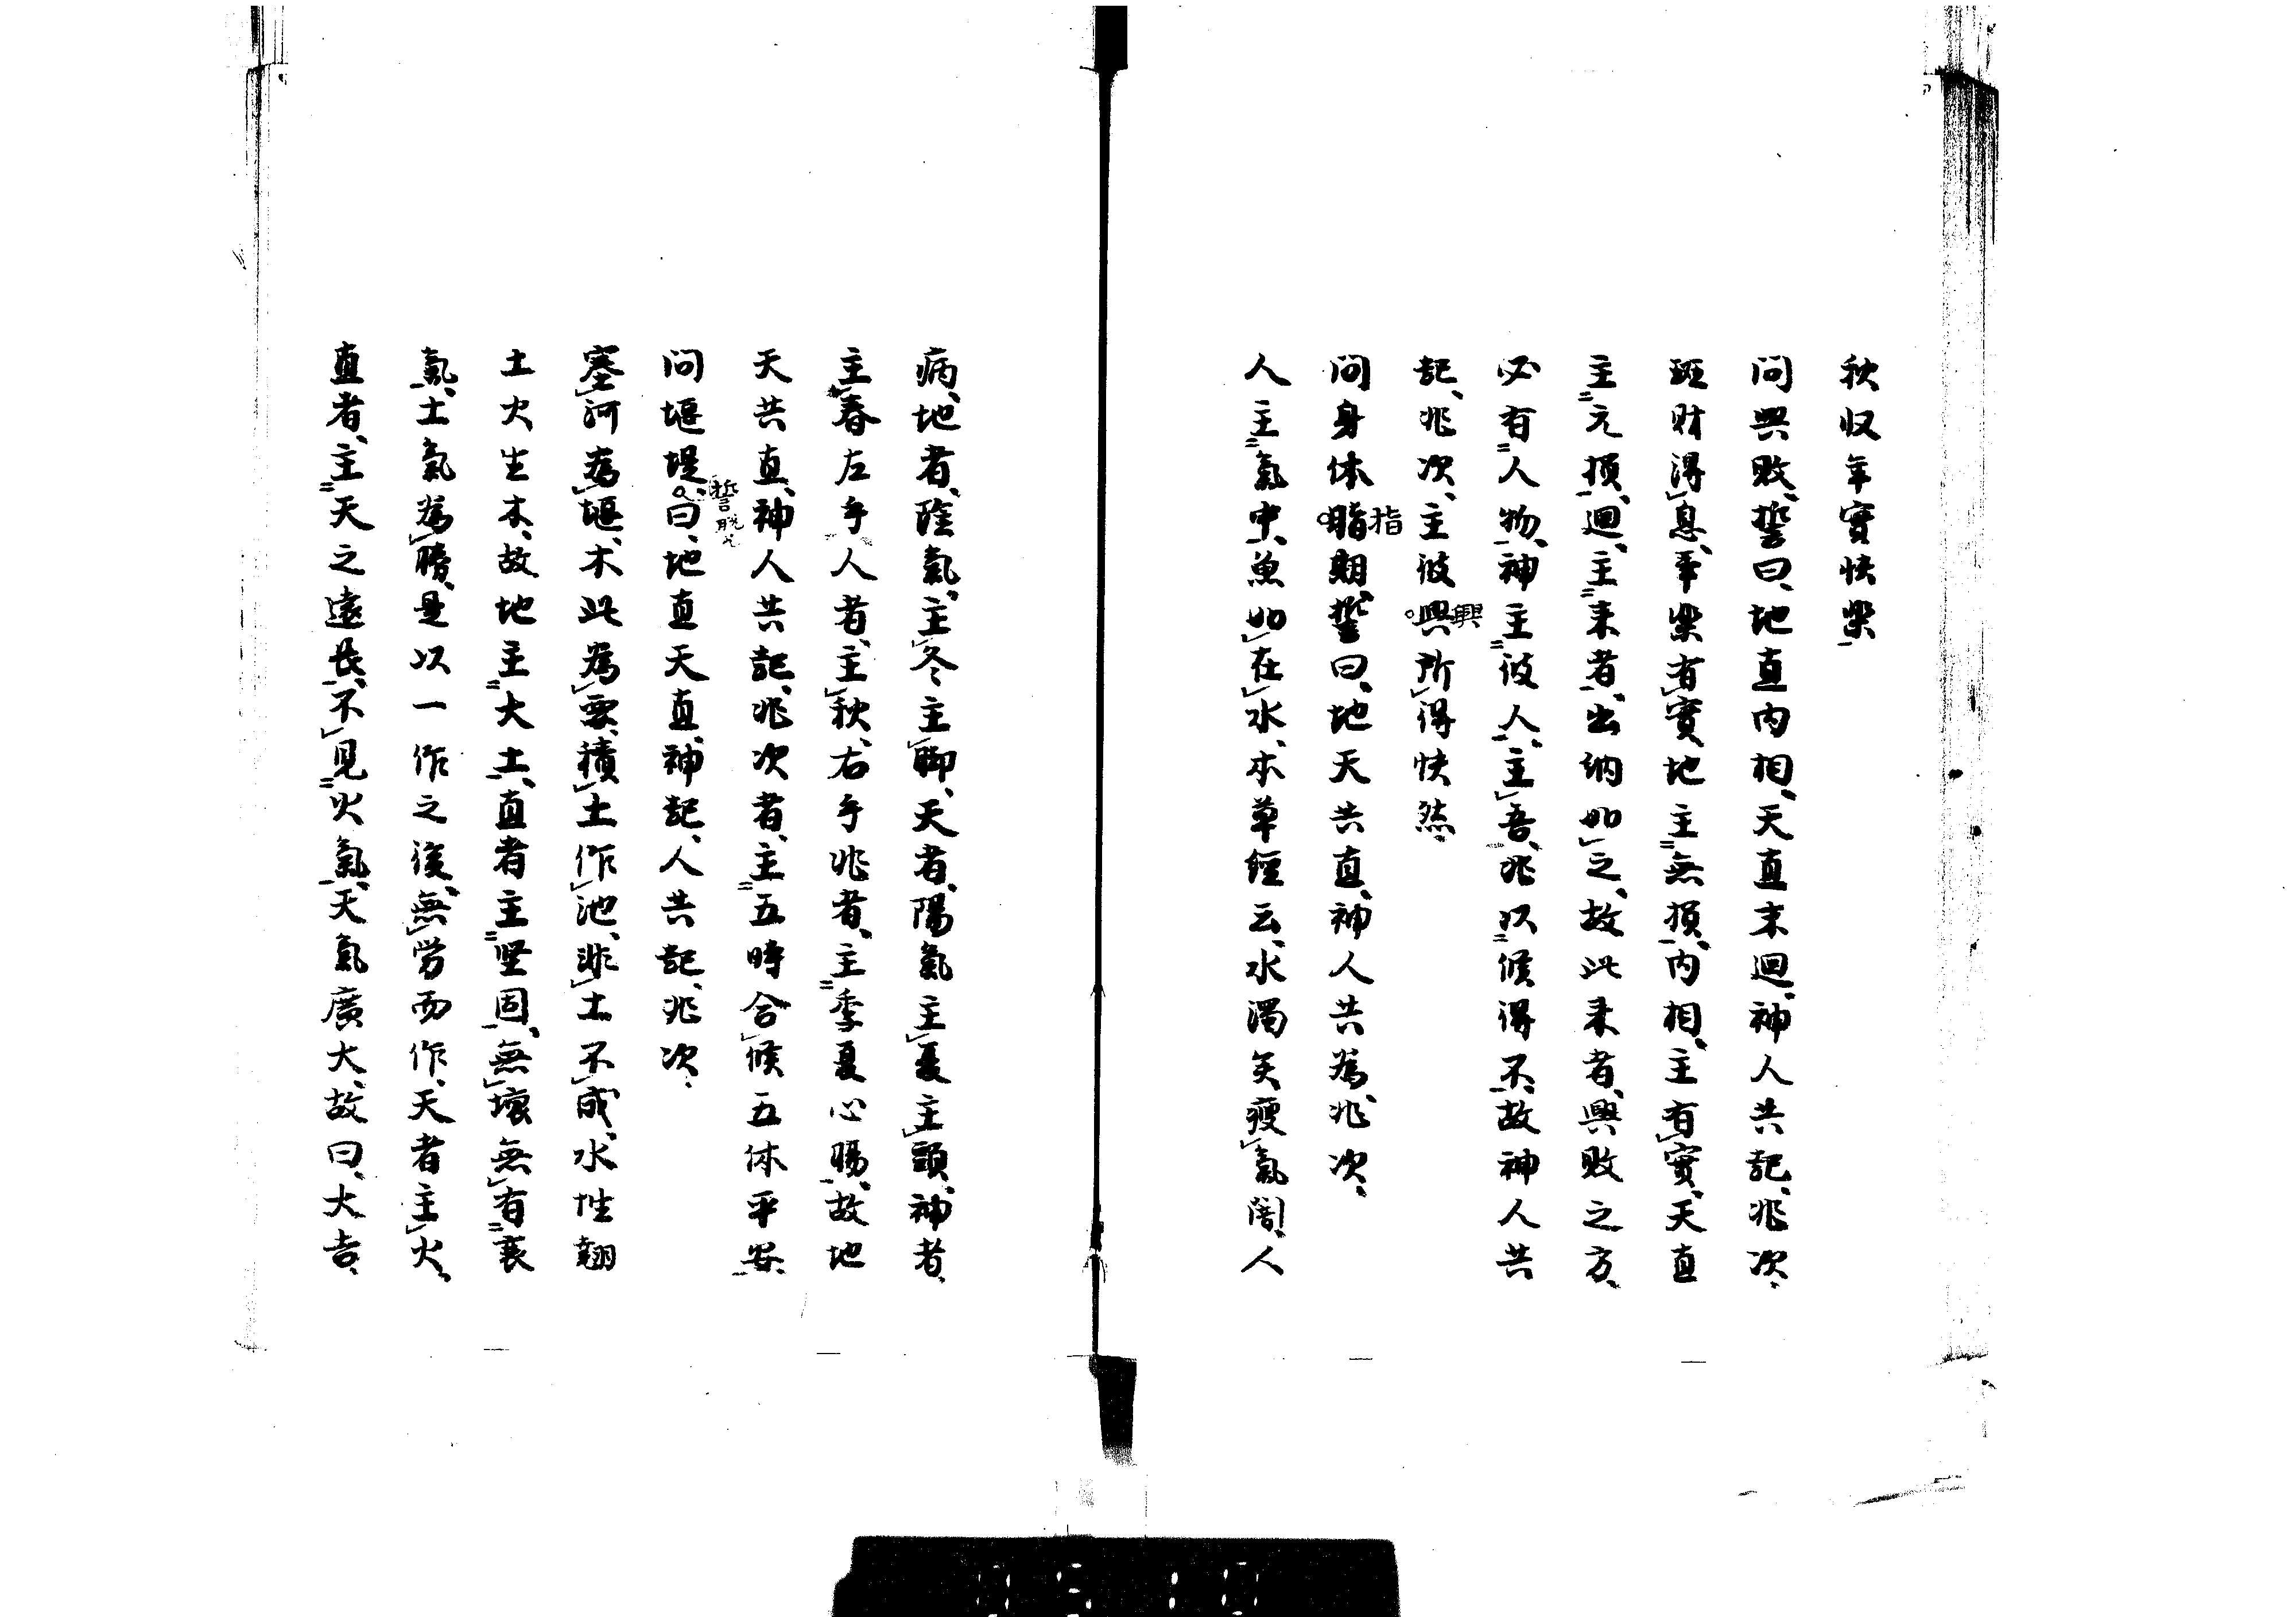 秋収年實快楽
問興敗、誓曰、地直内相、天直末迴、神人共記、兆次、
班財得息、奉楽有實、地主無損、内相、主有實、天直
主元損、迴、主来者、出納如之、故此来者、興敗之方、
必有人物、神主彼人、主吾、兆以候得不、故神人共
記、兆次、主彼興所得快然、
興
問身体脂期、誓曰、地天共直、神人共為、兆次、
指
人主氣中、魚如在水、本草經云、水濁矣痩氣闇、人
病、地者、陰氣、主冬主脚、天者、陽氣主夏主頭、神者、
主春左手人者、主秋、右手兆者、主季夏心腸、故地
天共直、神人共記、兆次者、主五時合候五体平安
問堰堤、曰、地直天直、神記、人共記、兆次、
誓脱乀
塞河為堰、木此為要、積土作池、非土不成、水性翹
土火生木、故地主大土、直者主堅固、無壞無有衰
氣、土氣為勝、是以一作之後、無労而作、天者主火、
直者、主天之遠長、不見火氣、天氣廣大、故曰、大吉、